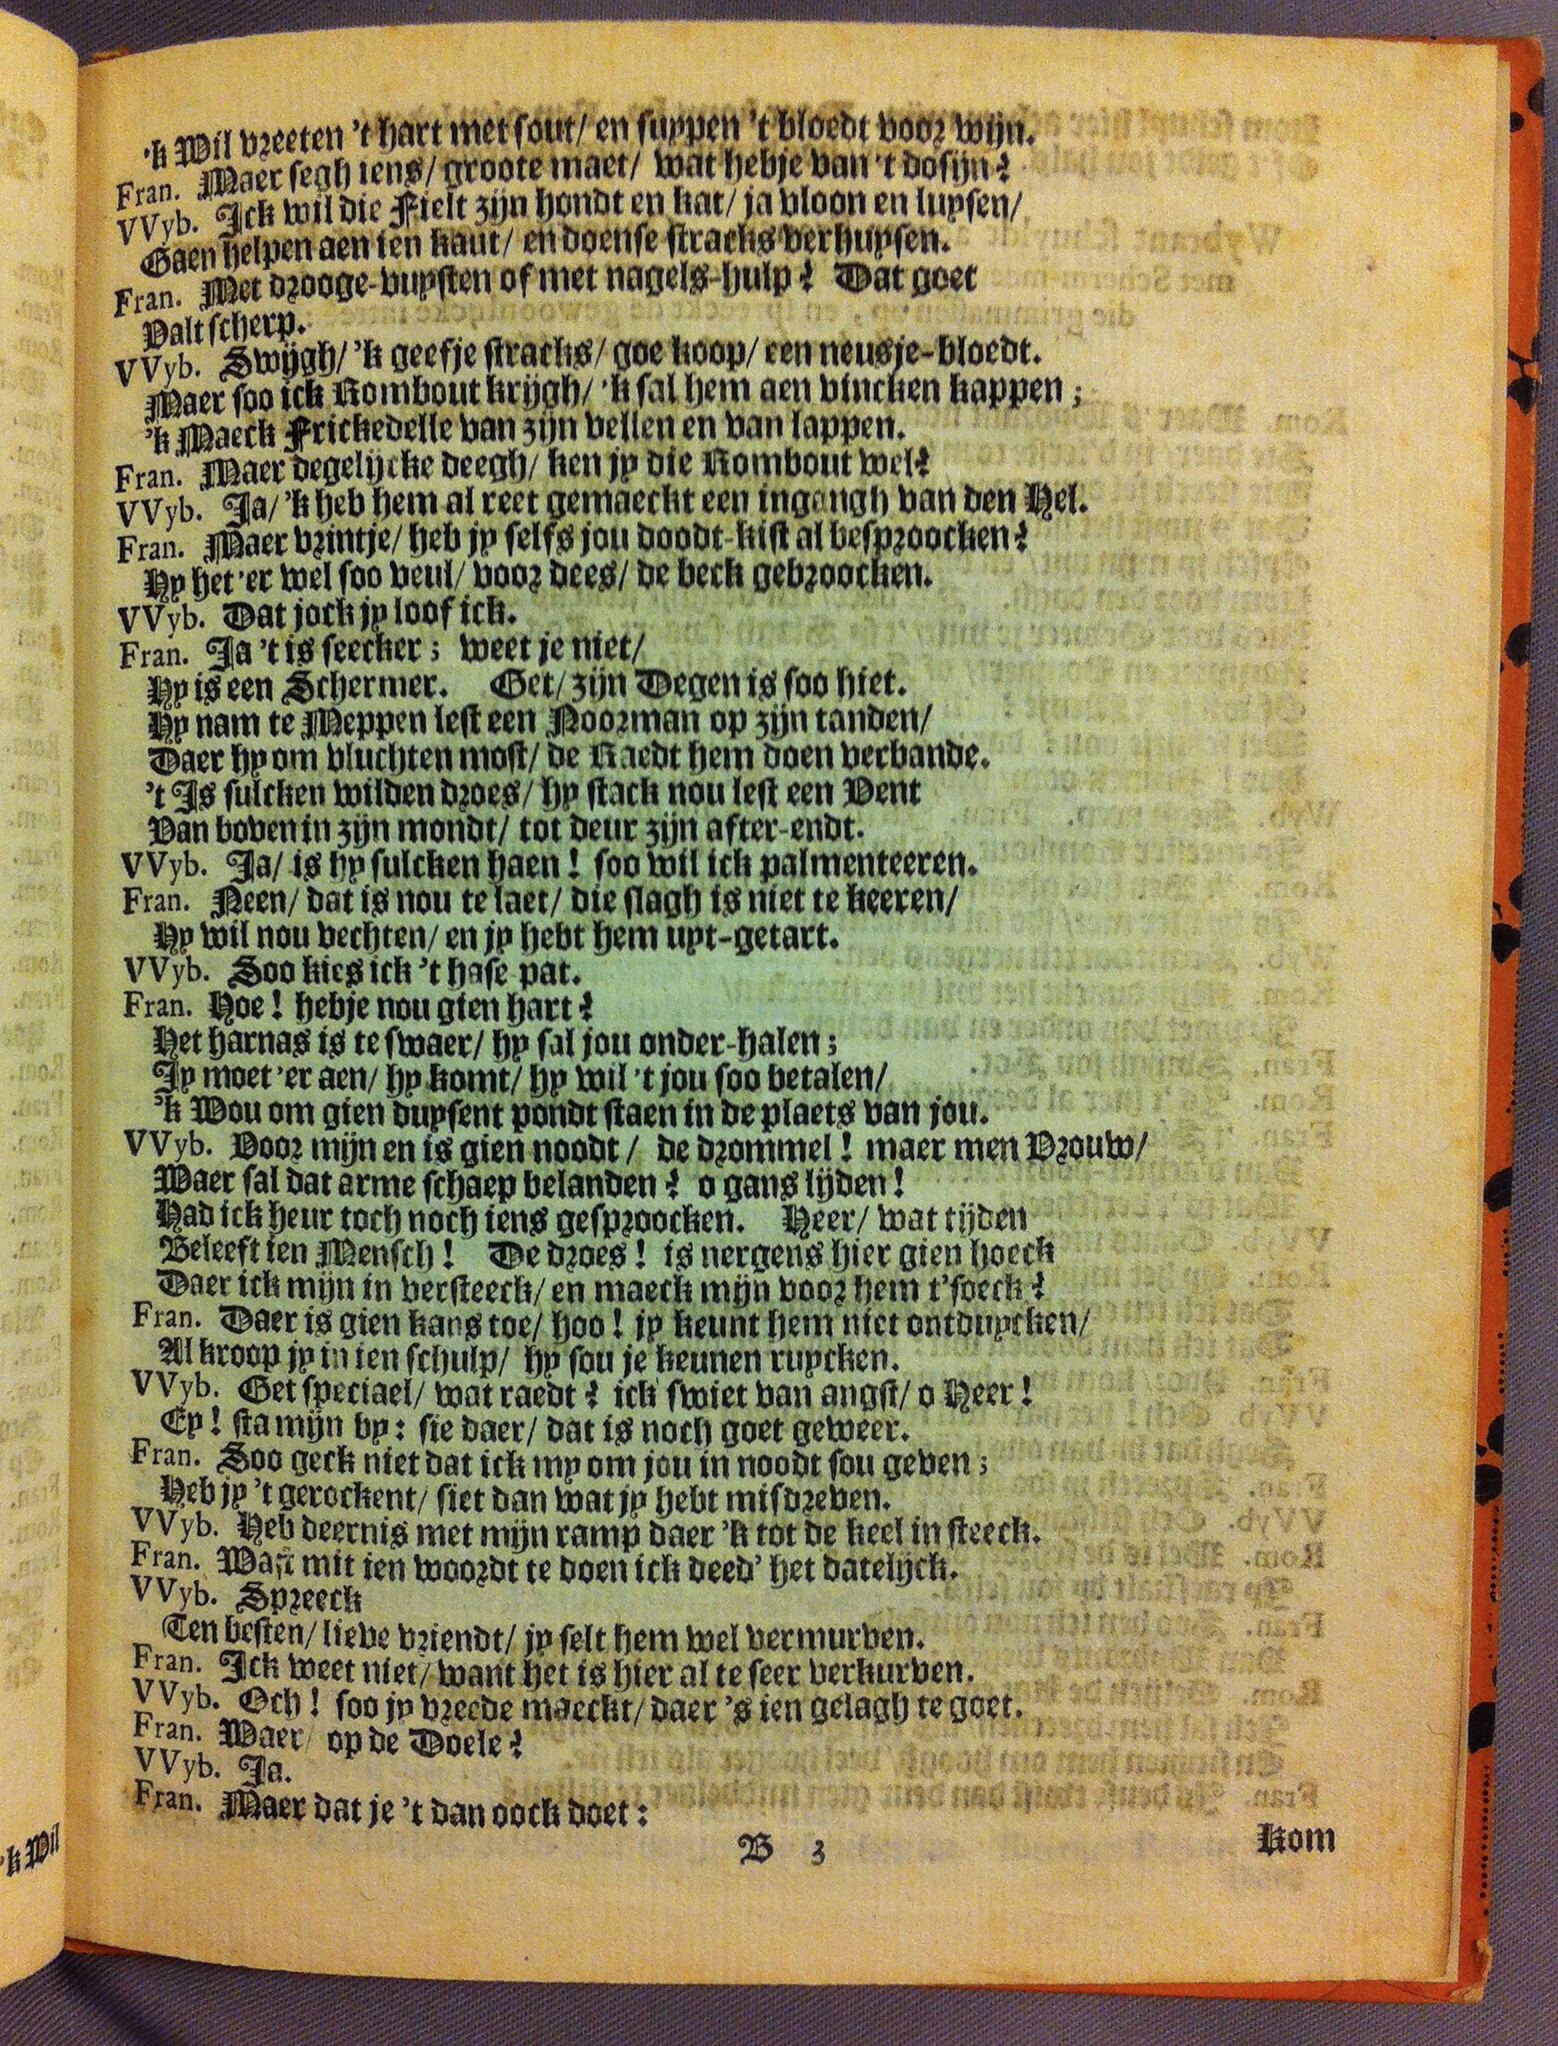 'k Wil vreeten 't hart met sout/ en suypen 't bloedt voor wijn.
Fran. Maer segh iens/ groote maet/ wat hebje van 't dosijn?
VVyb. Ick wil die Fielt zijn hondt en kat/ ja vloon en luysen/
Gaen helpen aen ien kant/ en doense stracks verhuysen.
Fran. Met drooge-vuysten of met nagels-hulp? Dat goet
Valt scherp.
VVyb. Swijgh/ 'k geefje stracks/ goe koop/ een neusje-bloedt.
Maer soo ick Rombout krijgh/ 'k sal hem aen vincken kappen;
'k Maeck Frickedelle van zijn vellen en van lappen.
Fran. Maer degelijcke deegh/ ken jy die Rombout wel?
VVyb. Ja/ 'k heb hem al reet gemaeckt een ingangh van den Hel.
Fran. Maer vrintje/ heb jy selfs jou doodt-kist al besproocken?
Hy het 'er wel soo veul/ voor dees/ de beck gebroocken.
VVyb. Dat jock jy loof ick.
Fran. Ja 't is seecker; weet je niet/
Hy is een Schermer. Get/ zijn Degen is soo hiet.
Hy nam te Meppen lest een Noorman op zijn tanden/
Daer hy om vluchten most/ de Raedt hem doen verbande.
't Is sulcken wilden droes/ hy stack nou lest een Vent
Van boven in zijn mondt/ tot deur zijn after-endt.
VVyb. Ja/ is hy sulcken haen! soo wil ick palmenteeren.
Fran. Neen/ dat is nou te laet/ die slagh is niet te keeren/
Hy wil nou vechten/ en jy hebt hem uyt-getart.
VVyb. Soo kies ick 't hase pat.
Fran. Hoe! hebje nou gien hart?
Het harnas is te swaer/ hy sal jou onder-halen;
Jy moet 'er aen/ hy komt/ hy wil 't jou soo betalen/
'k Wou om gien duysent pondt staen in de plaets van jou.
VVyb. Voor mijn en is gien noodt/ de drommel! maer men Vrouw/
Waer sal dat arme schaep belanden? o gans lijden!
Had ick heur toch noch iens gesproocken. Heer/ wat tijden
Beleeft ien Mensch! De droes! is nergens hier gien hoeck
Daer ick mijn in versteeck/ en maeck mijn voor hem t'soeck?
Fran. Daer is gien kans toe/ hoo! jy keunt hem niet ontduycken/
Al kroop jy in ien schulp/ hy sou je keunen ruycken.
VVyb. Get speciael/ wat raedt? ick swiet van angst/ o Heer!
Ey! sta mijn by: sie daer/ dat is noch goet geweer.
Fran. Soo geck niet dat ick my om jou in noodt sou geven;
Heb jy 't gerockent/ siet dan wat jy hebt misdreven.
VVyb. Heb deernis met mijn ramp daer 'k tot de keel in steeck.
Fran. Wast mit ien woordt te doen ick deed' het datelijck.
VVyb. Spreeck
Ten besten/ lieve vriendt/ jy selt hem wel vermurven.
Fran. Ick weet niet/ want het is hier al te seer verkurven.
VVyb. Och! soo jy vreede maeckt/ daer 's ien gelagh te goet.
Fran. Waer/ op de Doele?
VVyb. Ja.
Fran. Maer dat je 't dan oock doet:
B 3
Kom
'k Wil